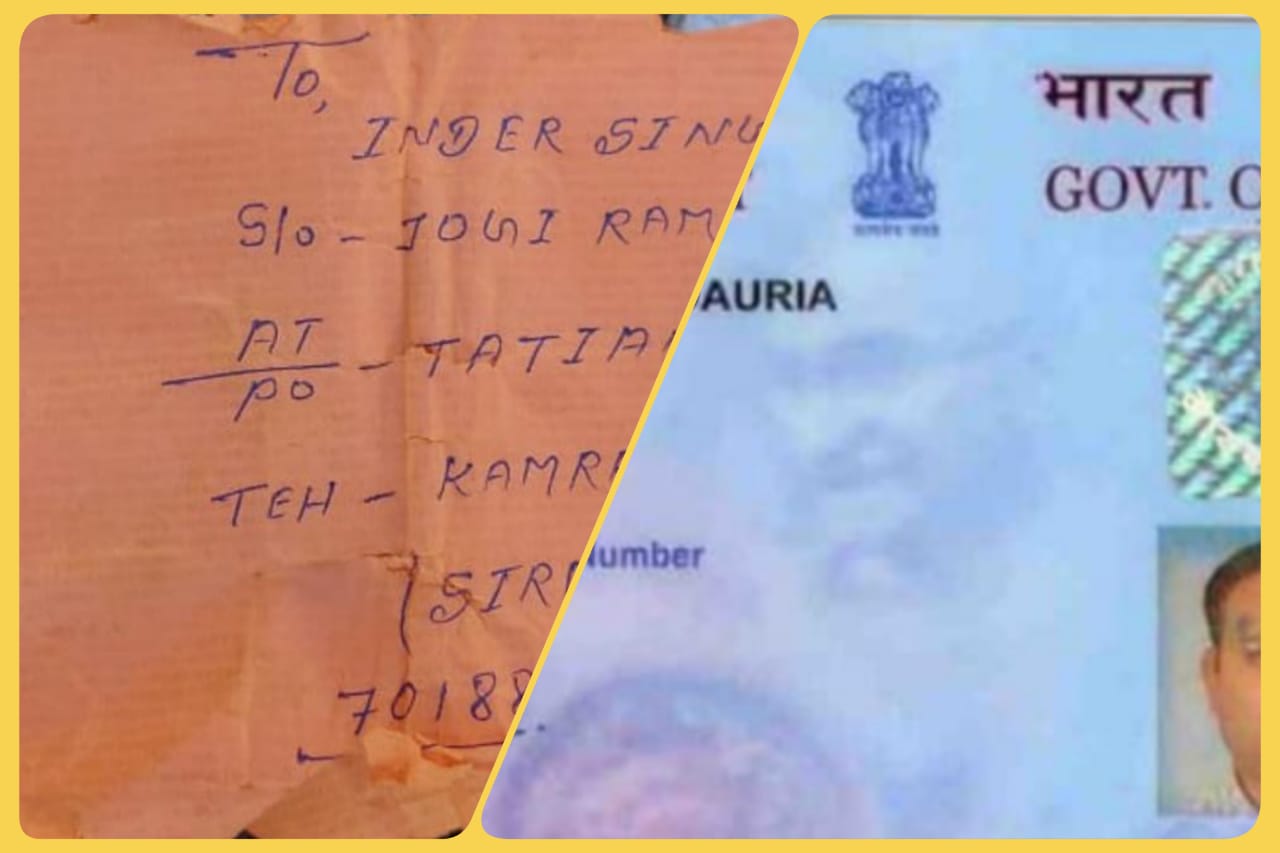 To,
INDER SING
S/o - JOGI RAM
AT
PO - TATIA
TEH - KAMRA
SIR
70188
भारत
GOVT. O
AURIA
umber